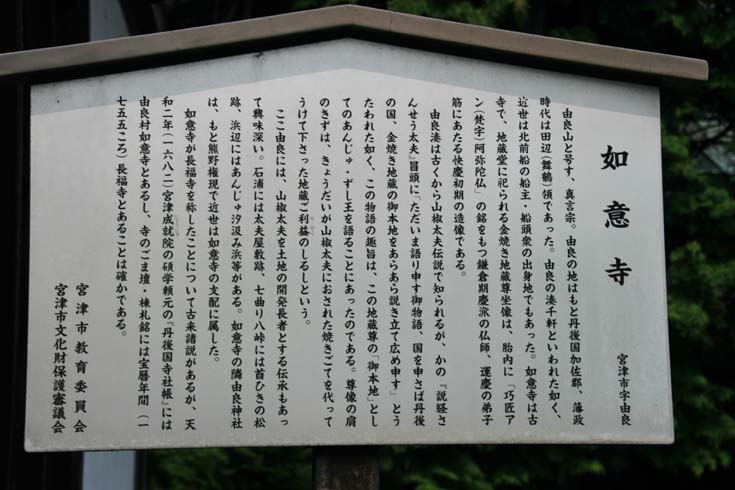 如意寺
宮津市字由良
由良山と号す、真言宗。由良の地はもと丹後国加佐郡、藩政
時代は田辺(舞鶴)領であった。由良の湊千軒といわれた如く、
近世は北前船の船主・船頭衆の出身地でもあった。如意寺は古
寺で、地蔵堂に祀られる金焼き地蔵尊坐像は、胎内に「巧匠ア
ン(梵字)阿弥陀仏」の銘をもつ鎌倉期慶派の仏師、運慶の弟子
筋にあたる快慶初期の造像である。
由良湊は古くから山椒太夫伝説で知られるが、かの『説経さ
んせう太夫』冒頭に「ただいま語り申す御物語、国を申さば丹後
の国、金焼き地蔵の御本地をあらあら説き立て広め申す」とう
たわれた如く、この物語の趣旨は、この地蔵尊の「御本地」とし
てのあんじゅ・ずし王を語ることにあったのである。尊像の肩
のきずは、きょうだいが山椒太夫におされた焼きごてを代って
うけて下さった地蔵ご利益のしるしという。
ここ由良には、山椒太夫を土地の開発長者とする伝承もあっ
て興味深い。石浦には太夫屋敷跡、七曲り八峠には首ひきの松
跡、浜辺にはあんじゅ汐汲み浜等がある。如意寺の隣由良神社
は、もと熊野権現で近世は如意寺の支配に属した。
如意寺が長福寺を称したことについて古来諸説があるが、天
和二年(一六八二)宮津成就院の碩学頼元の『丹後国寺社帳』には
由良村如意寺とあるし、寺のごま壇・棟札銘には宝暦年間(一
七五五ころ)長福寺とあることは確かである。
宮津市教育委員会
宮津市文化財保護審議会